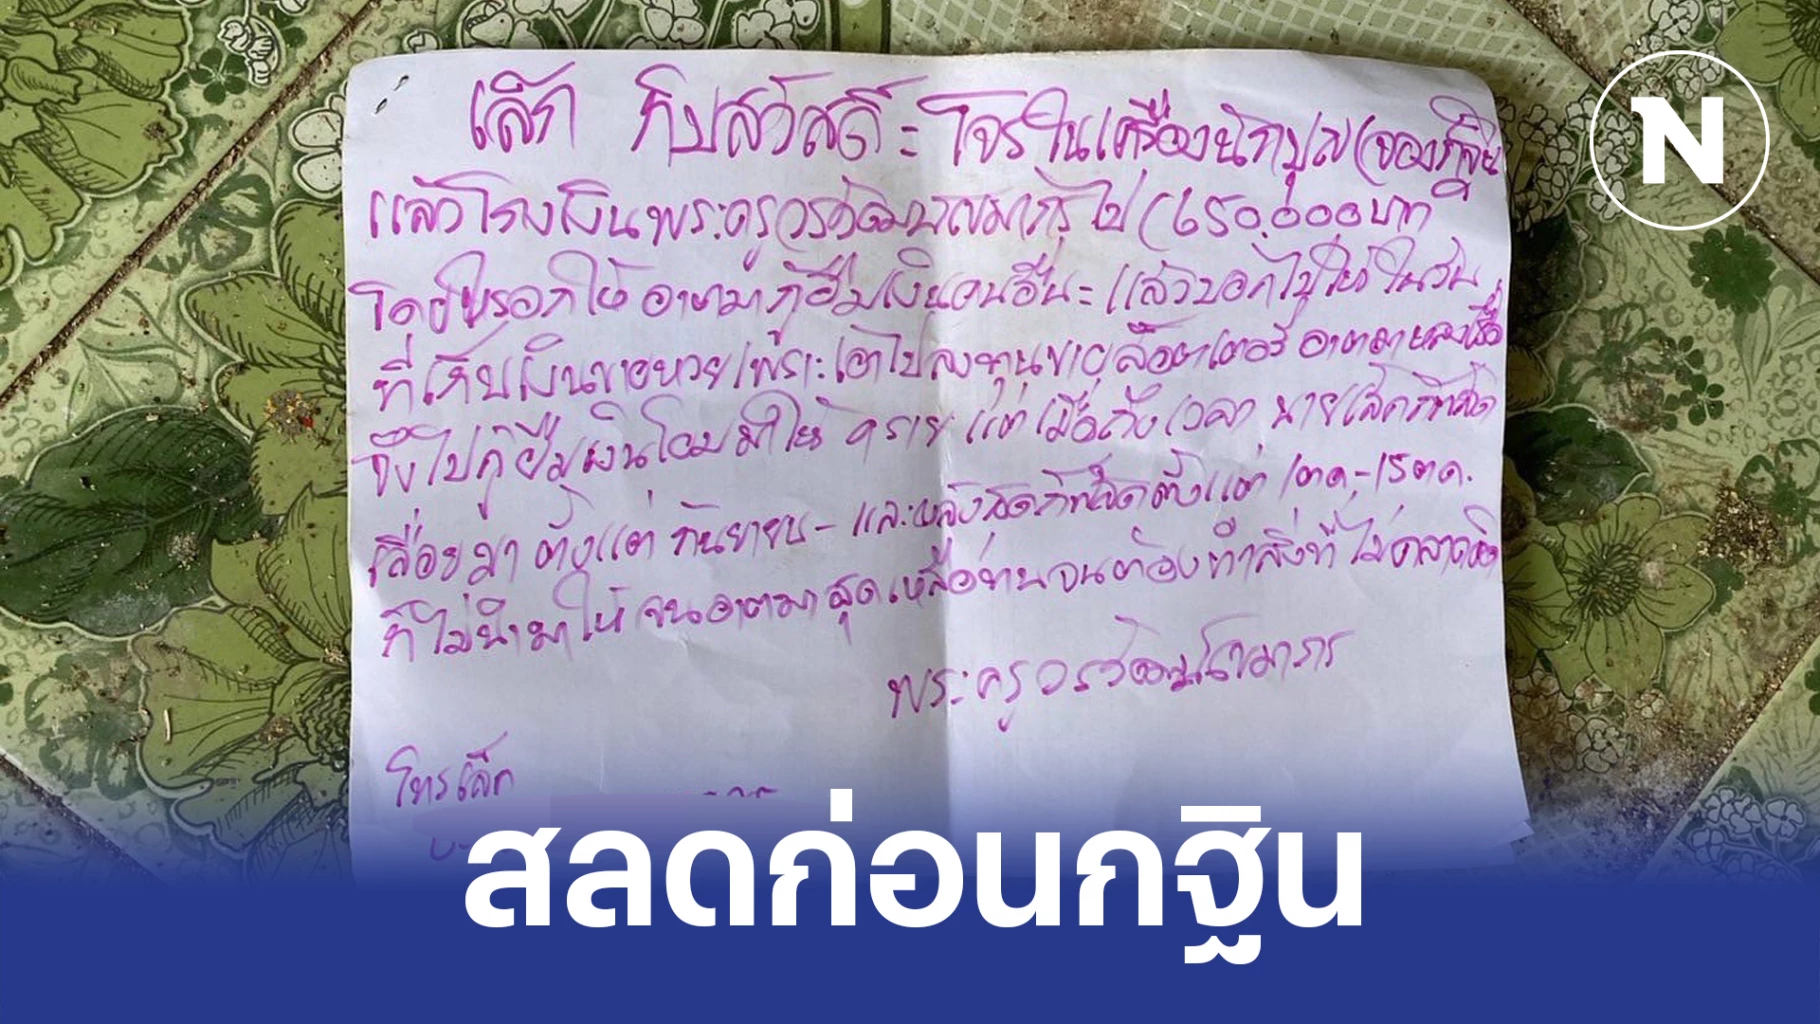 เล็ก ทิปสวัสดิ์ = โจรในเครื่องนักบุญ (จองกฐิน
แล้วโกงเงินพระครูวรวัฒน ไป (650.000บาท
โดยหลอกให้อาตมากู้ยืมเงินคนอื่น = แล้วบอกไปให้ในวัน
ที่เก็บเงินขายหวยเพราะเอาไปลงทุนขายล็อตเตอรี่ อาตมาหลงเชื่อ
จึงไปกู้ยืมเงินโอนมาให้ ราย แต่เมื่อถึงเวลา นายเล็กก็ผลัด
เลื่อยมา ตั้งแต่ กันยายน - และหลังสุดก็ผลัดตั้งแต่ 1ตค-15ตค.
ก็ไม่นำมาให้ จนอาตมาสุดเหลือทนจนต้องทำสิ่งที่ไม่คาดคิด
พระครูวรวัฒน
โทรเล็ก
สลดก่อนกฐิน
N